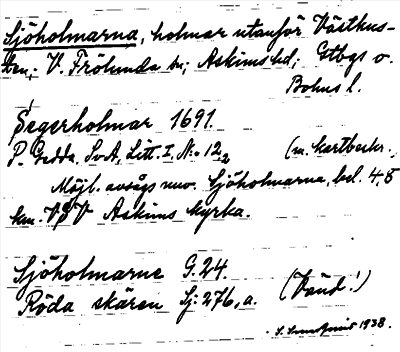 Sjöholmarna, holmar utanför Västkus-
ten; V. Frölunda sn; Askims hd; Gtbgs o.
Bohus l.
Segerholmar 1691.
P. Gedda, SvA, Litt. I, No 12₂ (m. kartbeckn.
Möjl. avsågs nuv. Sjöholmarna, bel. 4,8
km. VSV Askims kyrka.
Sjöholmarne G. 24.
Röda skären Sj: 276, a. (Känd!)
1938.